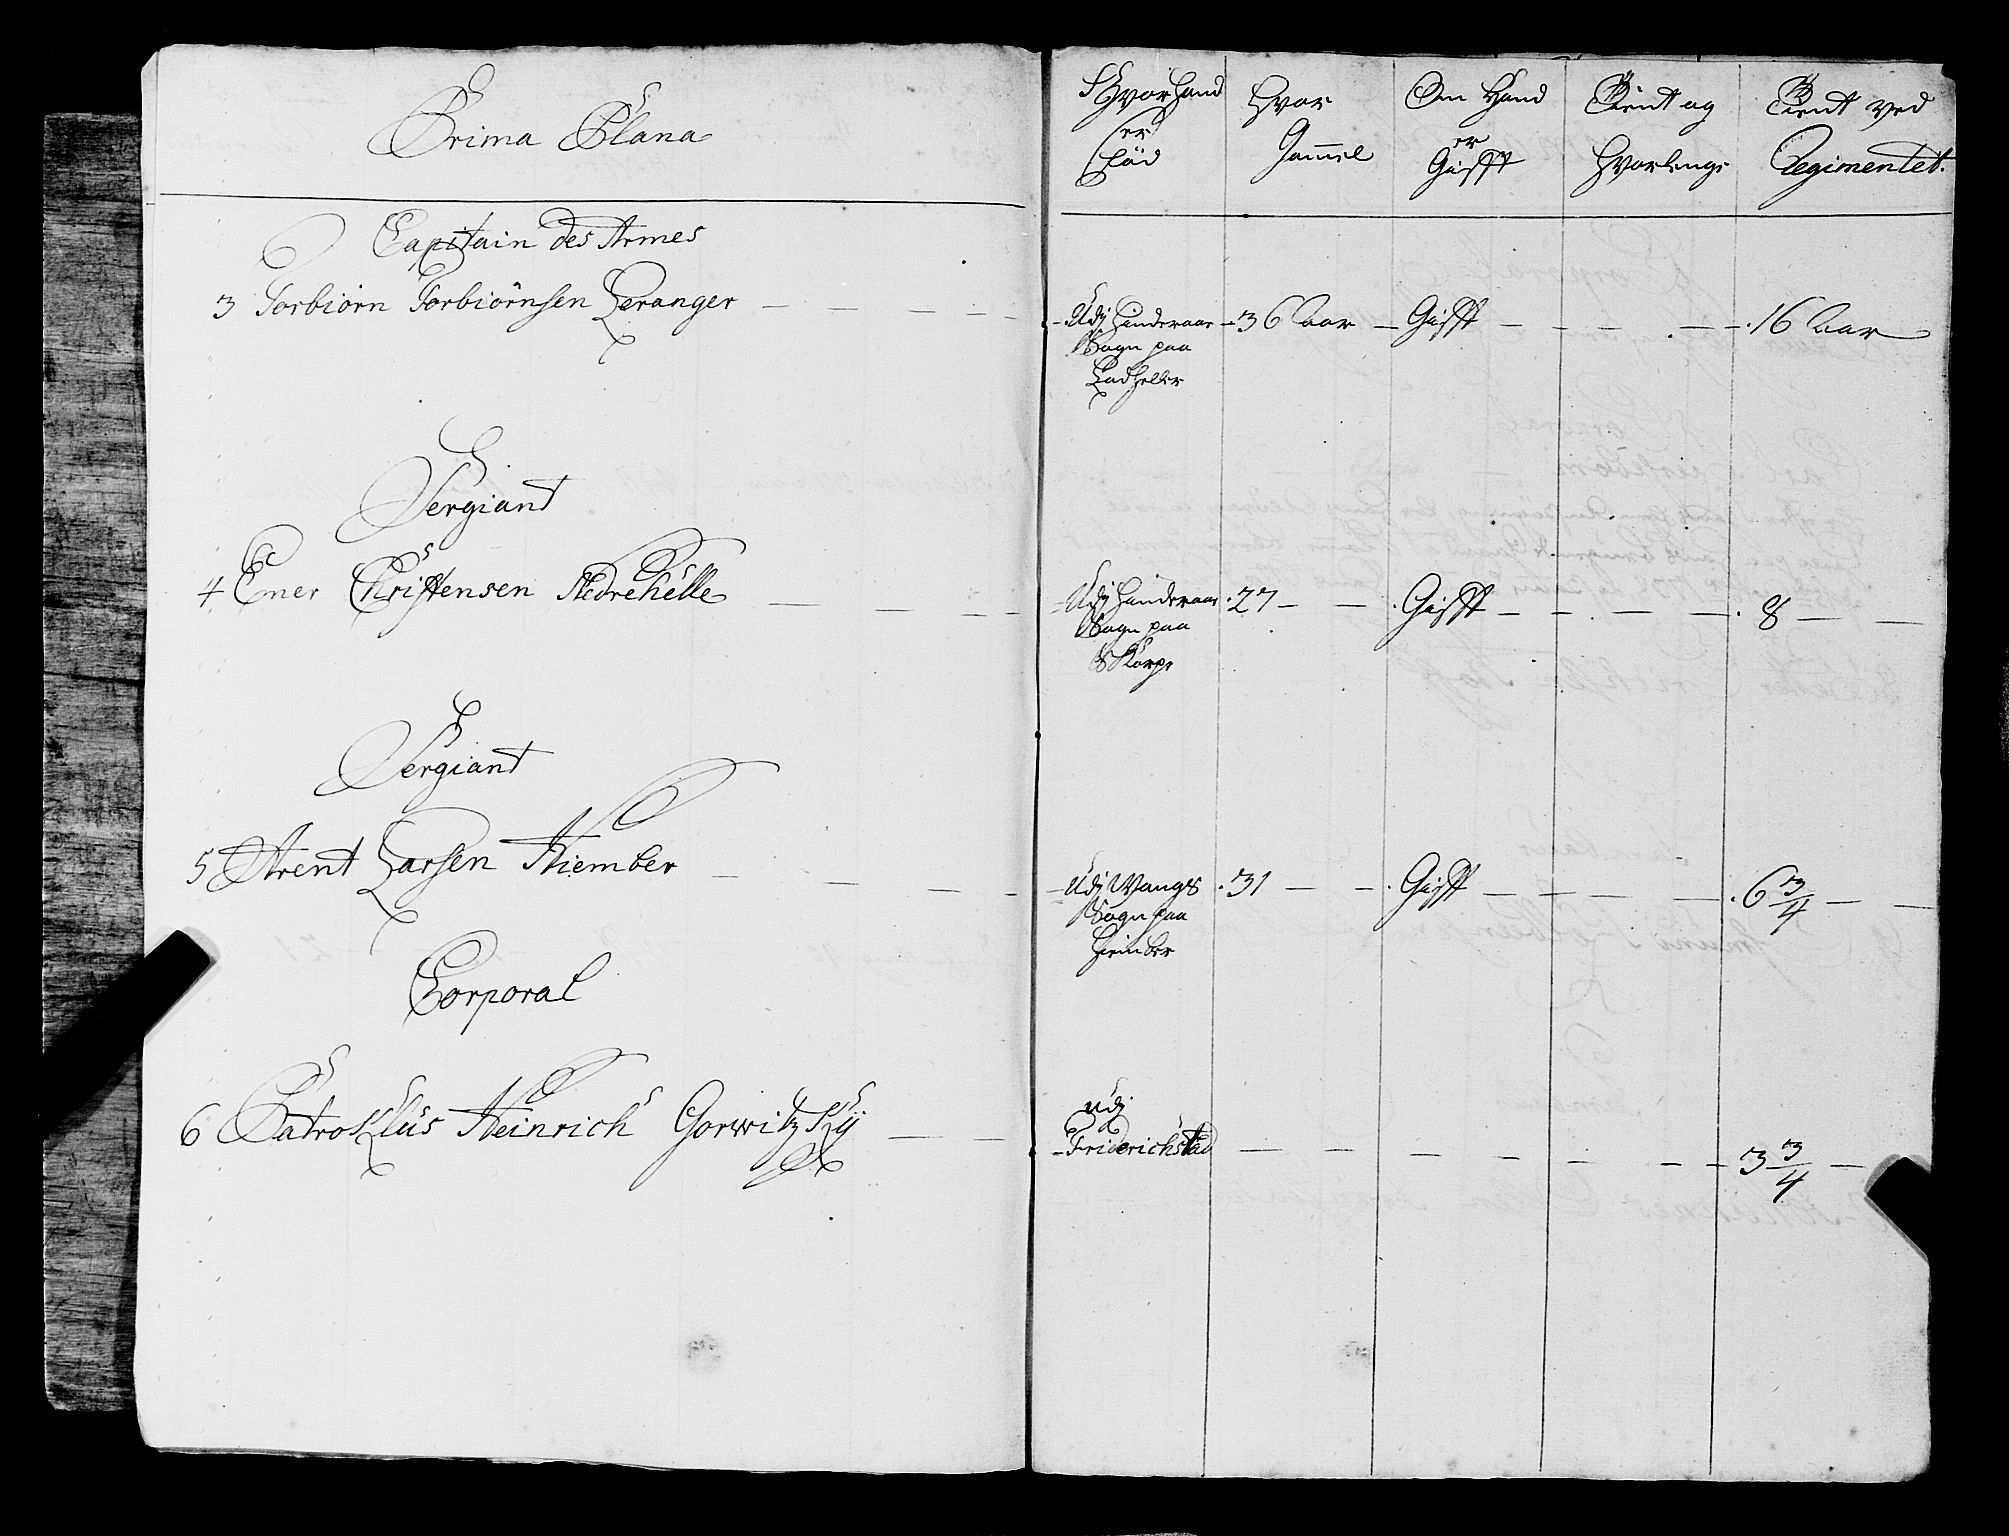 Prima Plana
Capitain des Armes
3 Torbiörn Torbiörnsen Leranger
Sergiant
4 Emer Christensen Nedrehelle
Sergiant
5 Arent Larsen Hiember
Corporal
6 Patroklus Heinrich Gorwitzky
Hvor hand er föd
Hvor Gammel
Om Hand er Gifft
Tient og Hvorlenge
Tient ved Regimentet.
Udj Hinderaas Sogn paa Ladhelle
36 Aar
Gifft
16 Aar
Udj Hinderaas Sogn paa Skorpe
27
Gifft
8
Udj Wangs Sogn paa Hiember
31
Gifft
6 3/4
Udj Friderichstad
3 3/4